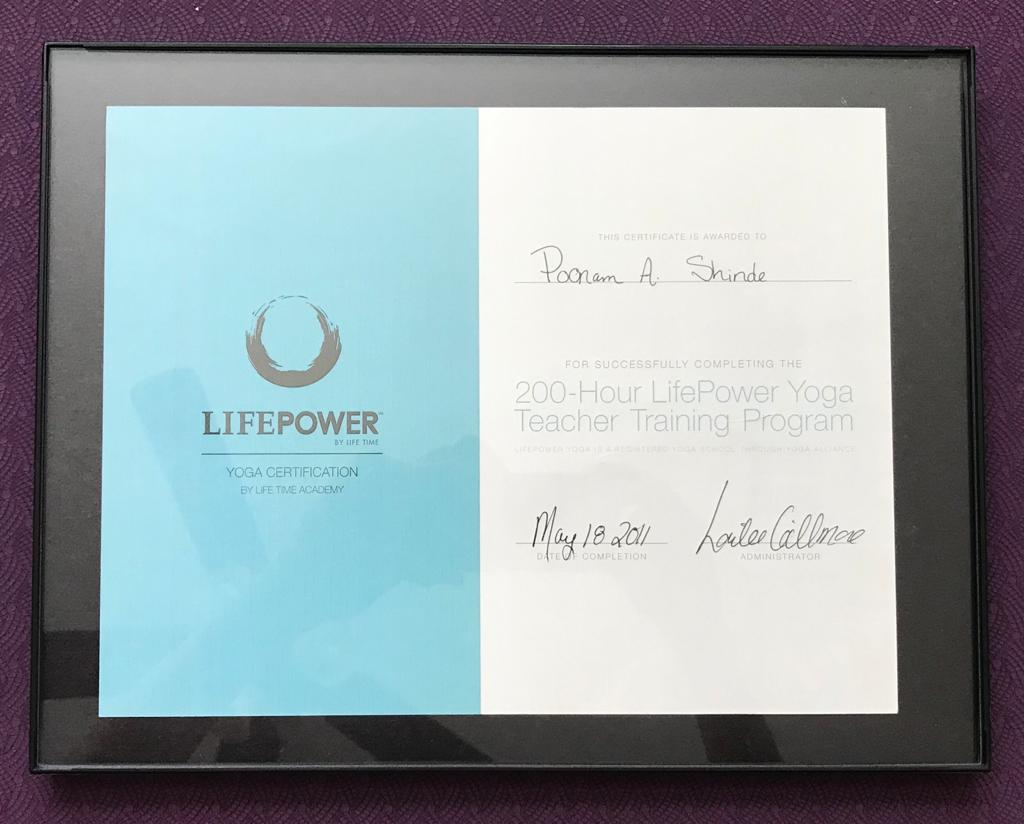 LIFEPOWER™
BY LIFE TIME
YOGA CERTIFICATION
BY LIFE TIME ACADEMY
THIS CERTIFICATE IS AWARDED TO
Poonam A. Shinde
FOR SUCCESSFULLY COMPLETING THE
200-Hour LifePower Yoga
Teacher Training Program
LIFEPOWER YOGA IS A REGISTERED YOGA SCHOOL THROUGH YOGA ALLIANCE
May 18 2011
DATE OF COMPLETION
ADMINISTRATOR